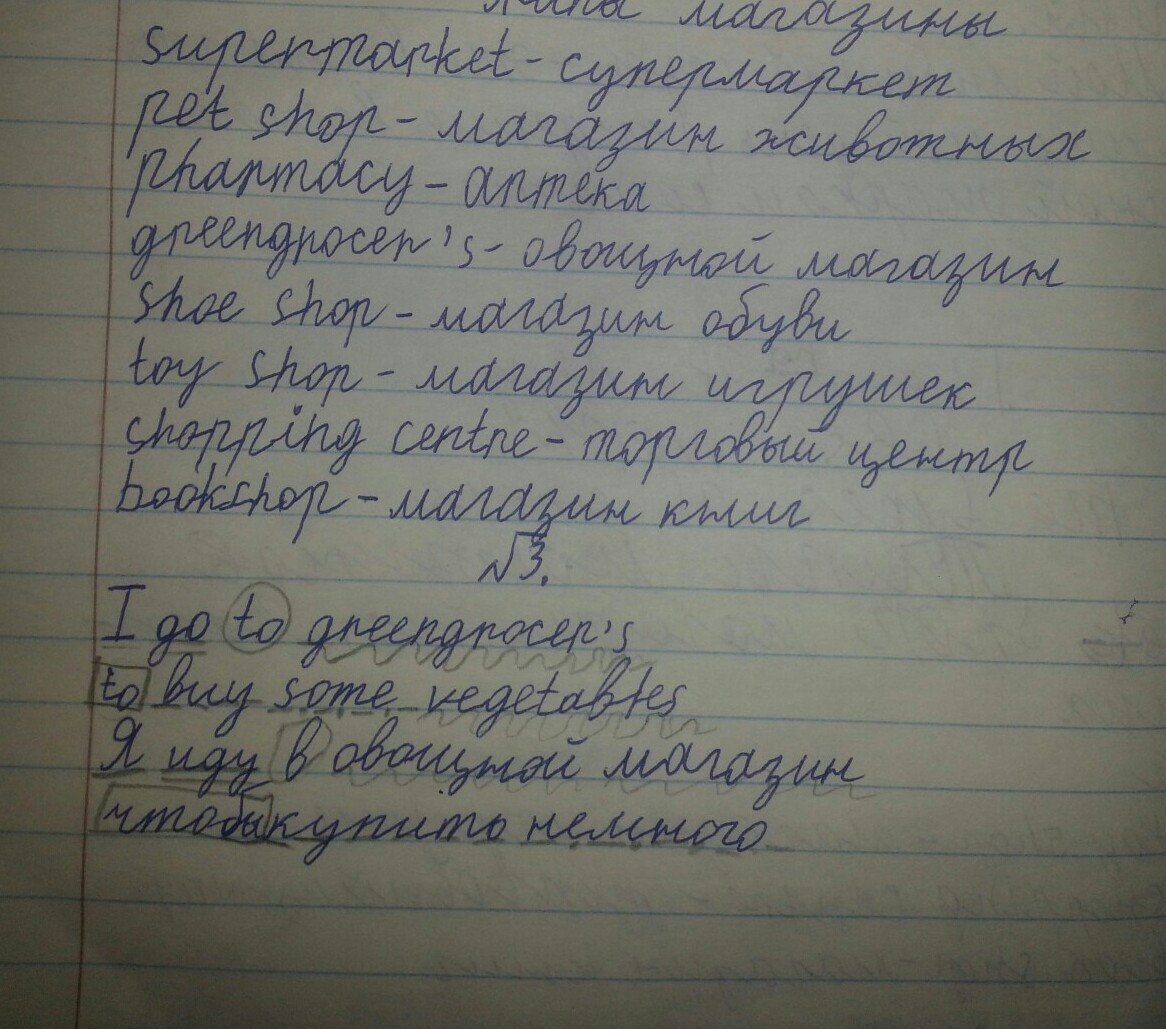 магазины
supermarket - супермаркет
pet shop - магазин животных
pharmacy - аптека
greengrocer's - овощной магазин
shoe shop - магазин обуви
toy shop - магазин игрушек
shopping centre - торговый центр
bookshop - магазин книг
№3.
I go to greengrocer's
to buy some vegetables
Я иду в овощной магазин
чтобы купить немного